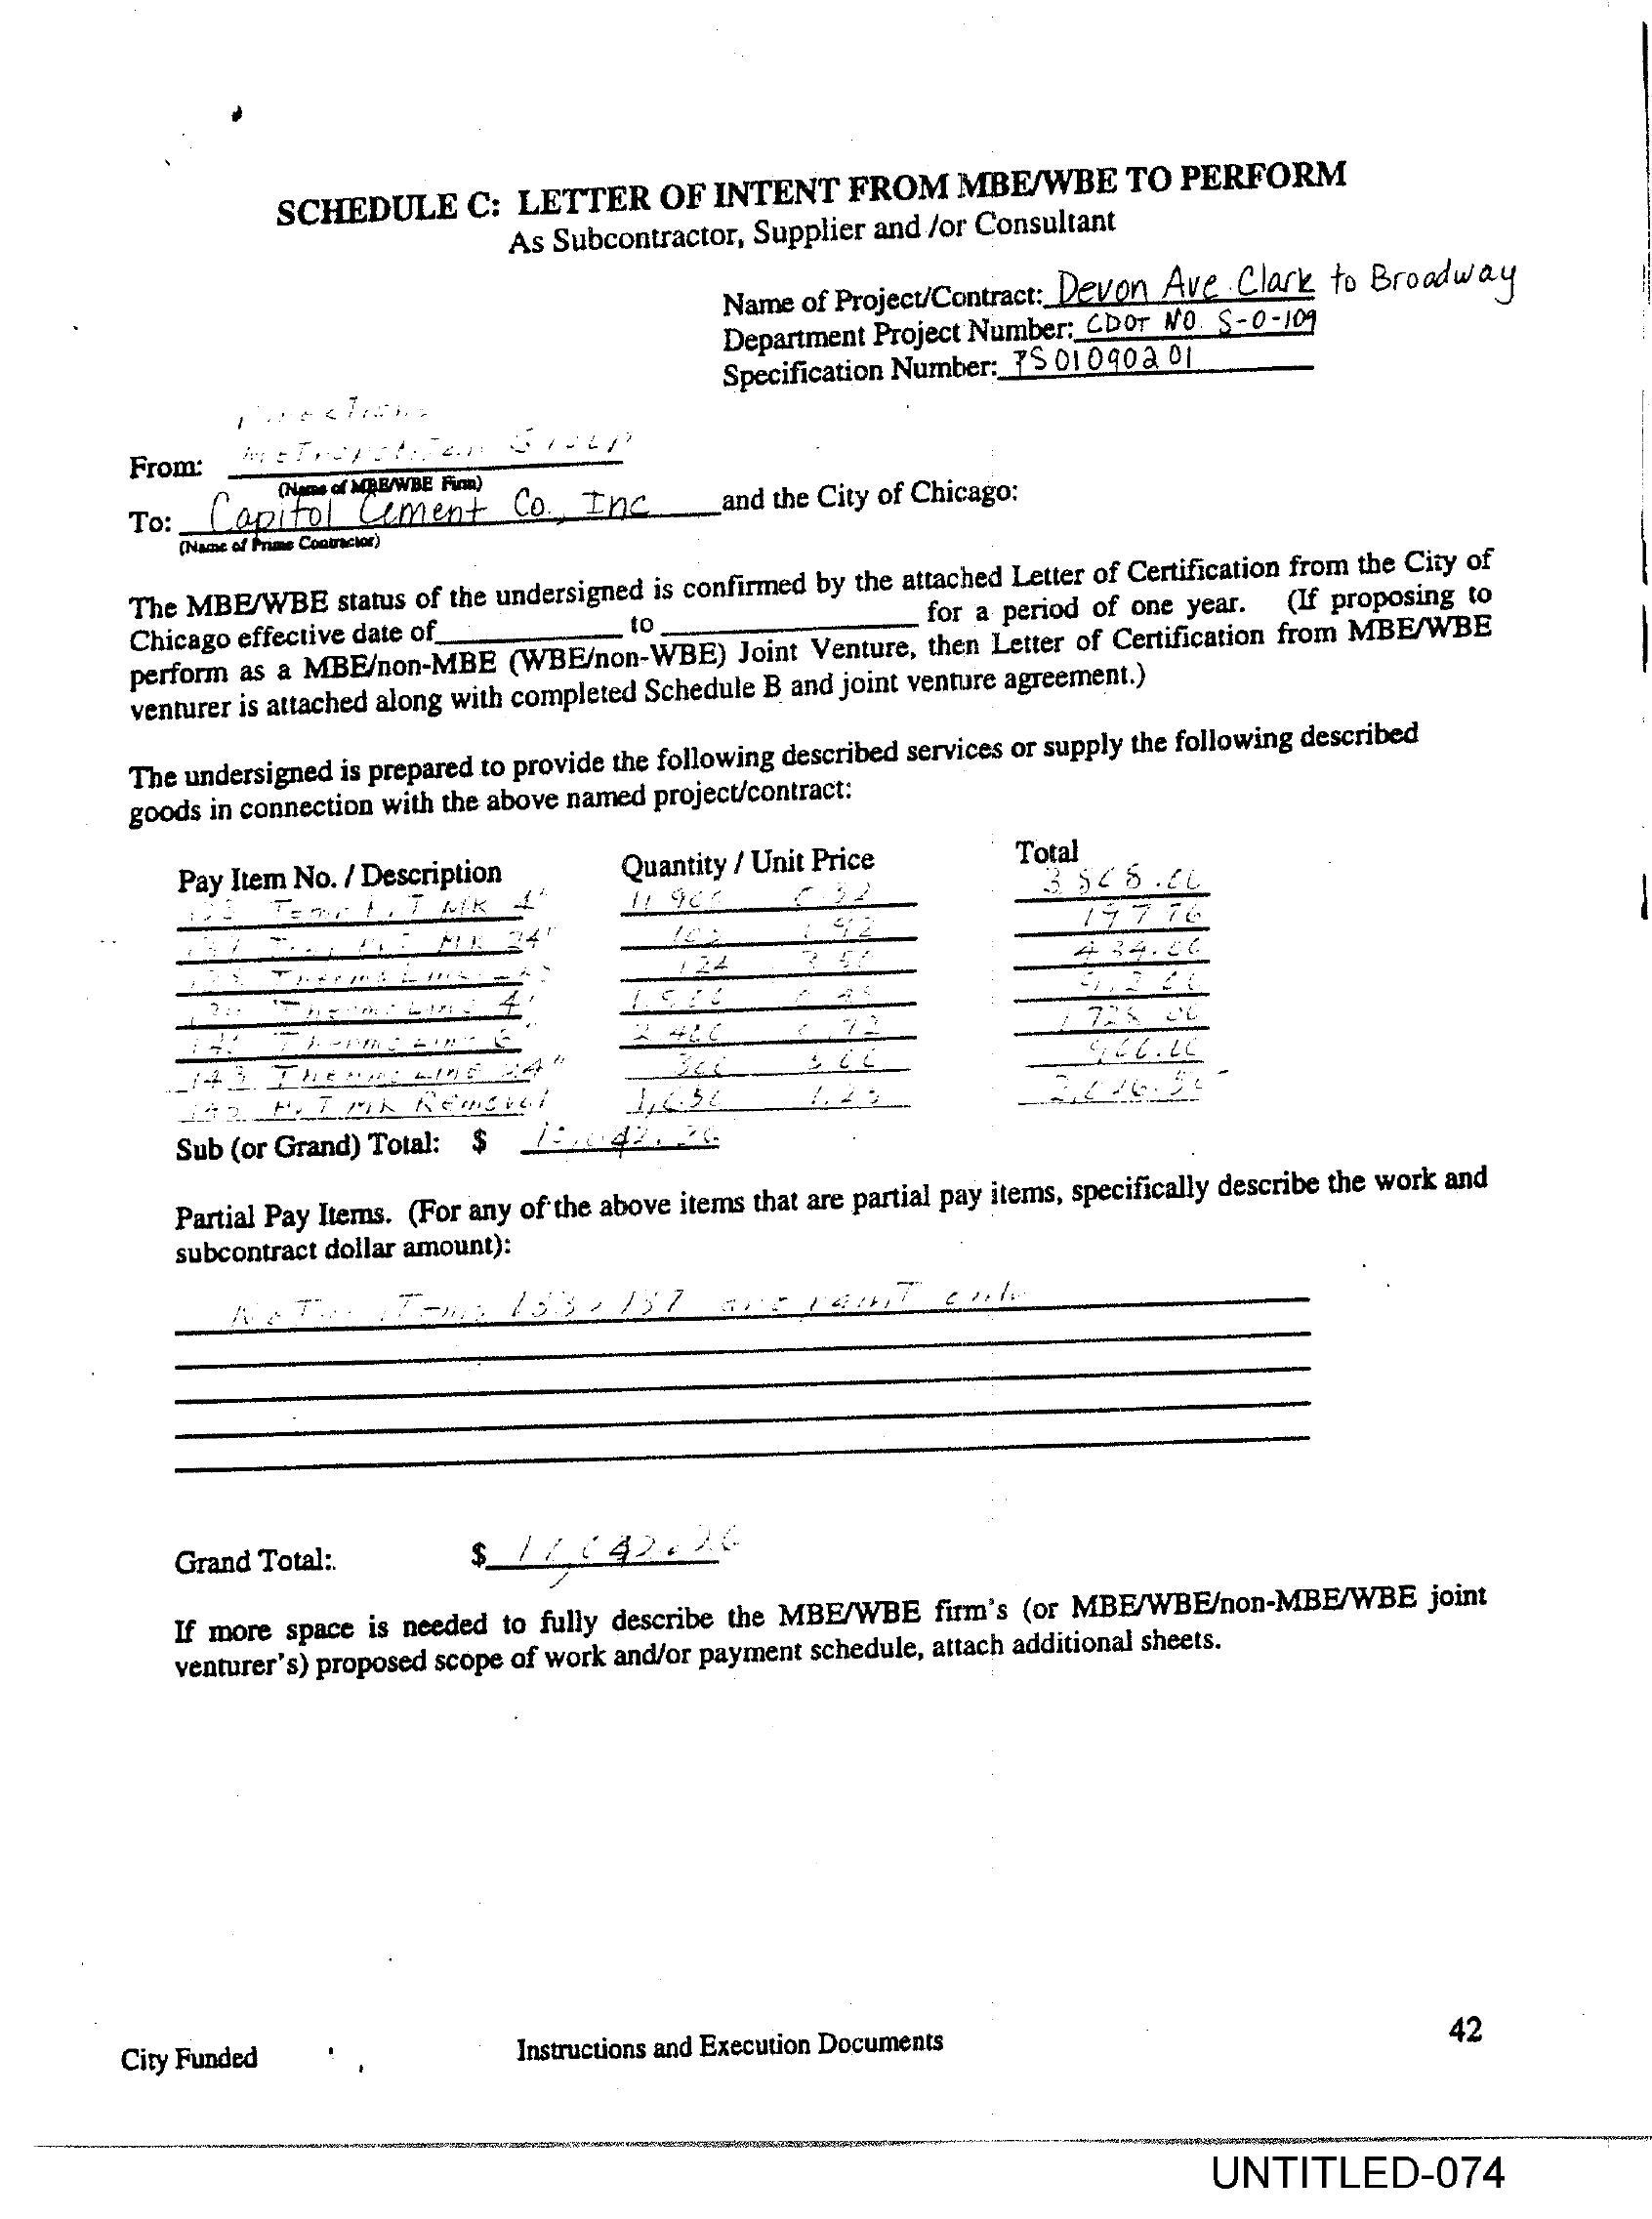 SCHEDULE C: LETTER OF INTENT FROM MBE/WBE TO PERFORM
As Subcontractor, Supplier and /or Consultant
Name of Project/Contract: Devon Ave Clark to Broadway
Department Project Number: CDOT NO. S-0-109
Specification Number: PS01090201
From: Metropolitan Group
(Name of MBE/WBE Firm)
To: Capitol Cement Co., Inc and the City of Chicago:
(Name of Prime Contractor)
The MBE/WBE status of the undersigned is confirmed by the attached Letter of Certification from the City of
Chicago effective date of to for a period of one year. (If proposing to
perform as a MBE/non-MBE (WBE/non-WBE) Joint Venture, then Letter of Certification from MBE/WBE
venturer is attached along with completed Schedule B and joint venture agreement.)
The undersigned is prepared to provide the following described services or supply the following described
goods in connection with the above named project/contract:
Pay Item No. / Description Quantity / Unit Price Total
Temp MK 4" 11 900 0.32 3 808.00
MK 24" 1.92 197 76
124 3 50 434.00
Thermo Line 4"
Thermo Line 6" 2 400 0.72 1 728 00
143 Thermo Line 24" 300 3.00 900.00
MK Removal 1,650 1.25
Sub (or Grand) Total: $
Partial Pay Items. (For any of the above items that are partial pay items, specifically describe the work and
subcontract dollar amount):
Note: Items 133, 137 are paint only
Grand Total:. $
If more space is needed to fully describe the MBE/WBE firm's (or MBE/WBE/non-MBE/WBE joint
venturer's) proposed scope of work and/or payment schedule, attach additional sheets.
City Funded Instructions and Execution Documents 42
UNTITLED-074